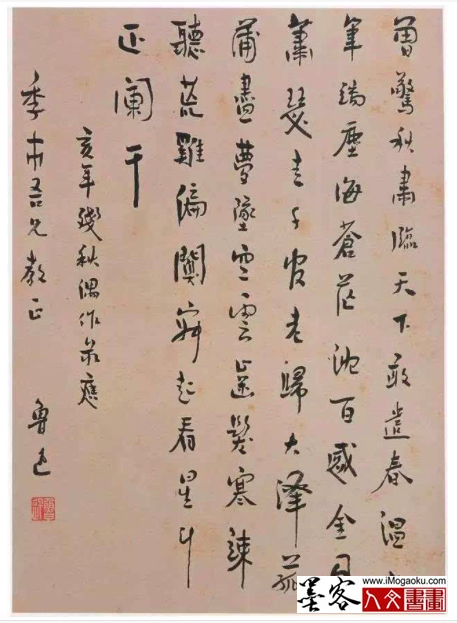 曾驚秋肅臨天下敢遣春溫
筆端塵海蒼茫沈百感金
蕭瑟走千官老歸大澤菰
蒲盡夢墜空雲齒髮寒竦
聽荒雞偏闃寂起看星斗
正闌干
亥年殘秋偶作錄應
季市吾兄教正
魯迅
www.iMogaoku.com
墨客 人文書畫